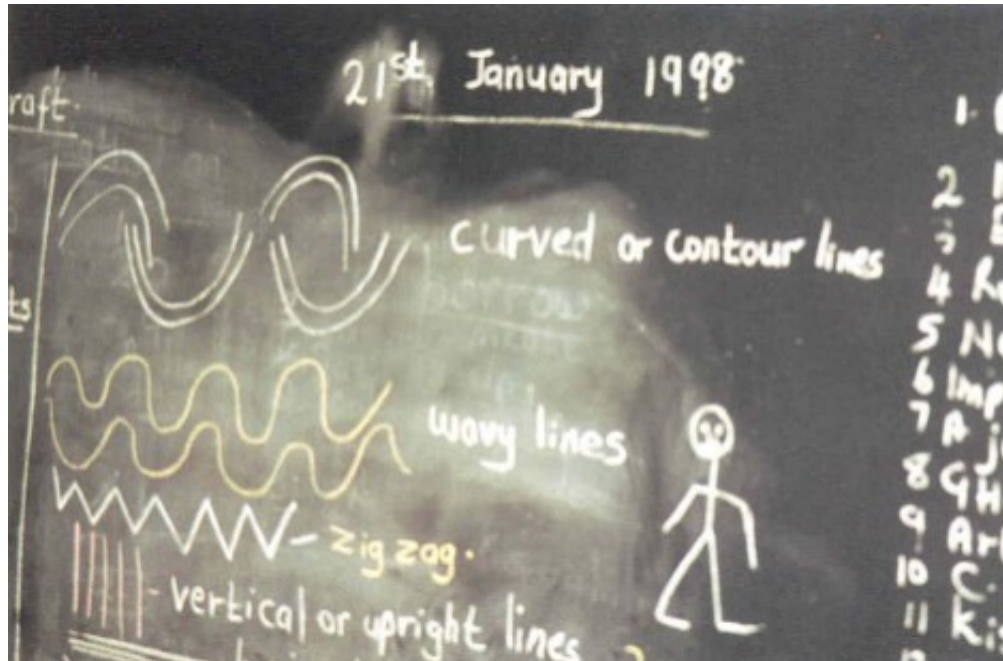 21st, January 1998
raft.
ts
curved or contour lines
wavy lines
- zig zag.
- vertical or upright lines
1.
2
4 R
5 N
6 Imp
7 A j
8 GH
9 Art
10 C.
11 Ki